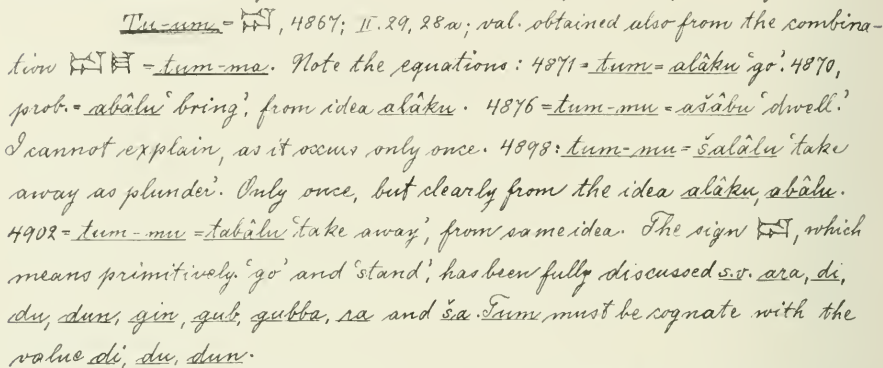 Tu-um = 𒁺, 4867; II. 29, 28a; val. obtained also from the combina-
tion 𒁺 𒈠 = tum-ma. Note the equations: 4871 = tum = alâku 'go'. 4870,
prob. = abâlu 'bring', from idea alâku. 4876 = tum-mu = ašâbu 'dwell'.
I cannot explain, as it occurs only once. 4898: tum-mu = šalâlu 'take
away as plunder'. Only once, but clearly from the idea alâku, abâlu.
4902 = tum-mu = tabâlu 'take away', from same idea. The sign 𒁺, which
means primitively 'go' and 'stand', has been fully discussed s.v. ara, di,
du, dun, gin, gub, gubba, ra and ša. Tum must be cognate with the
value di, du, dun.